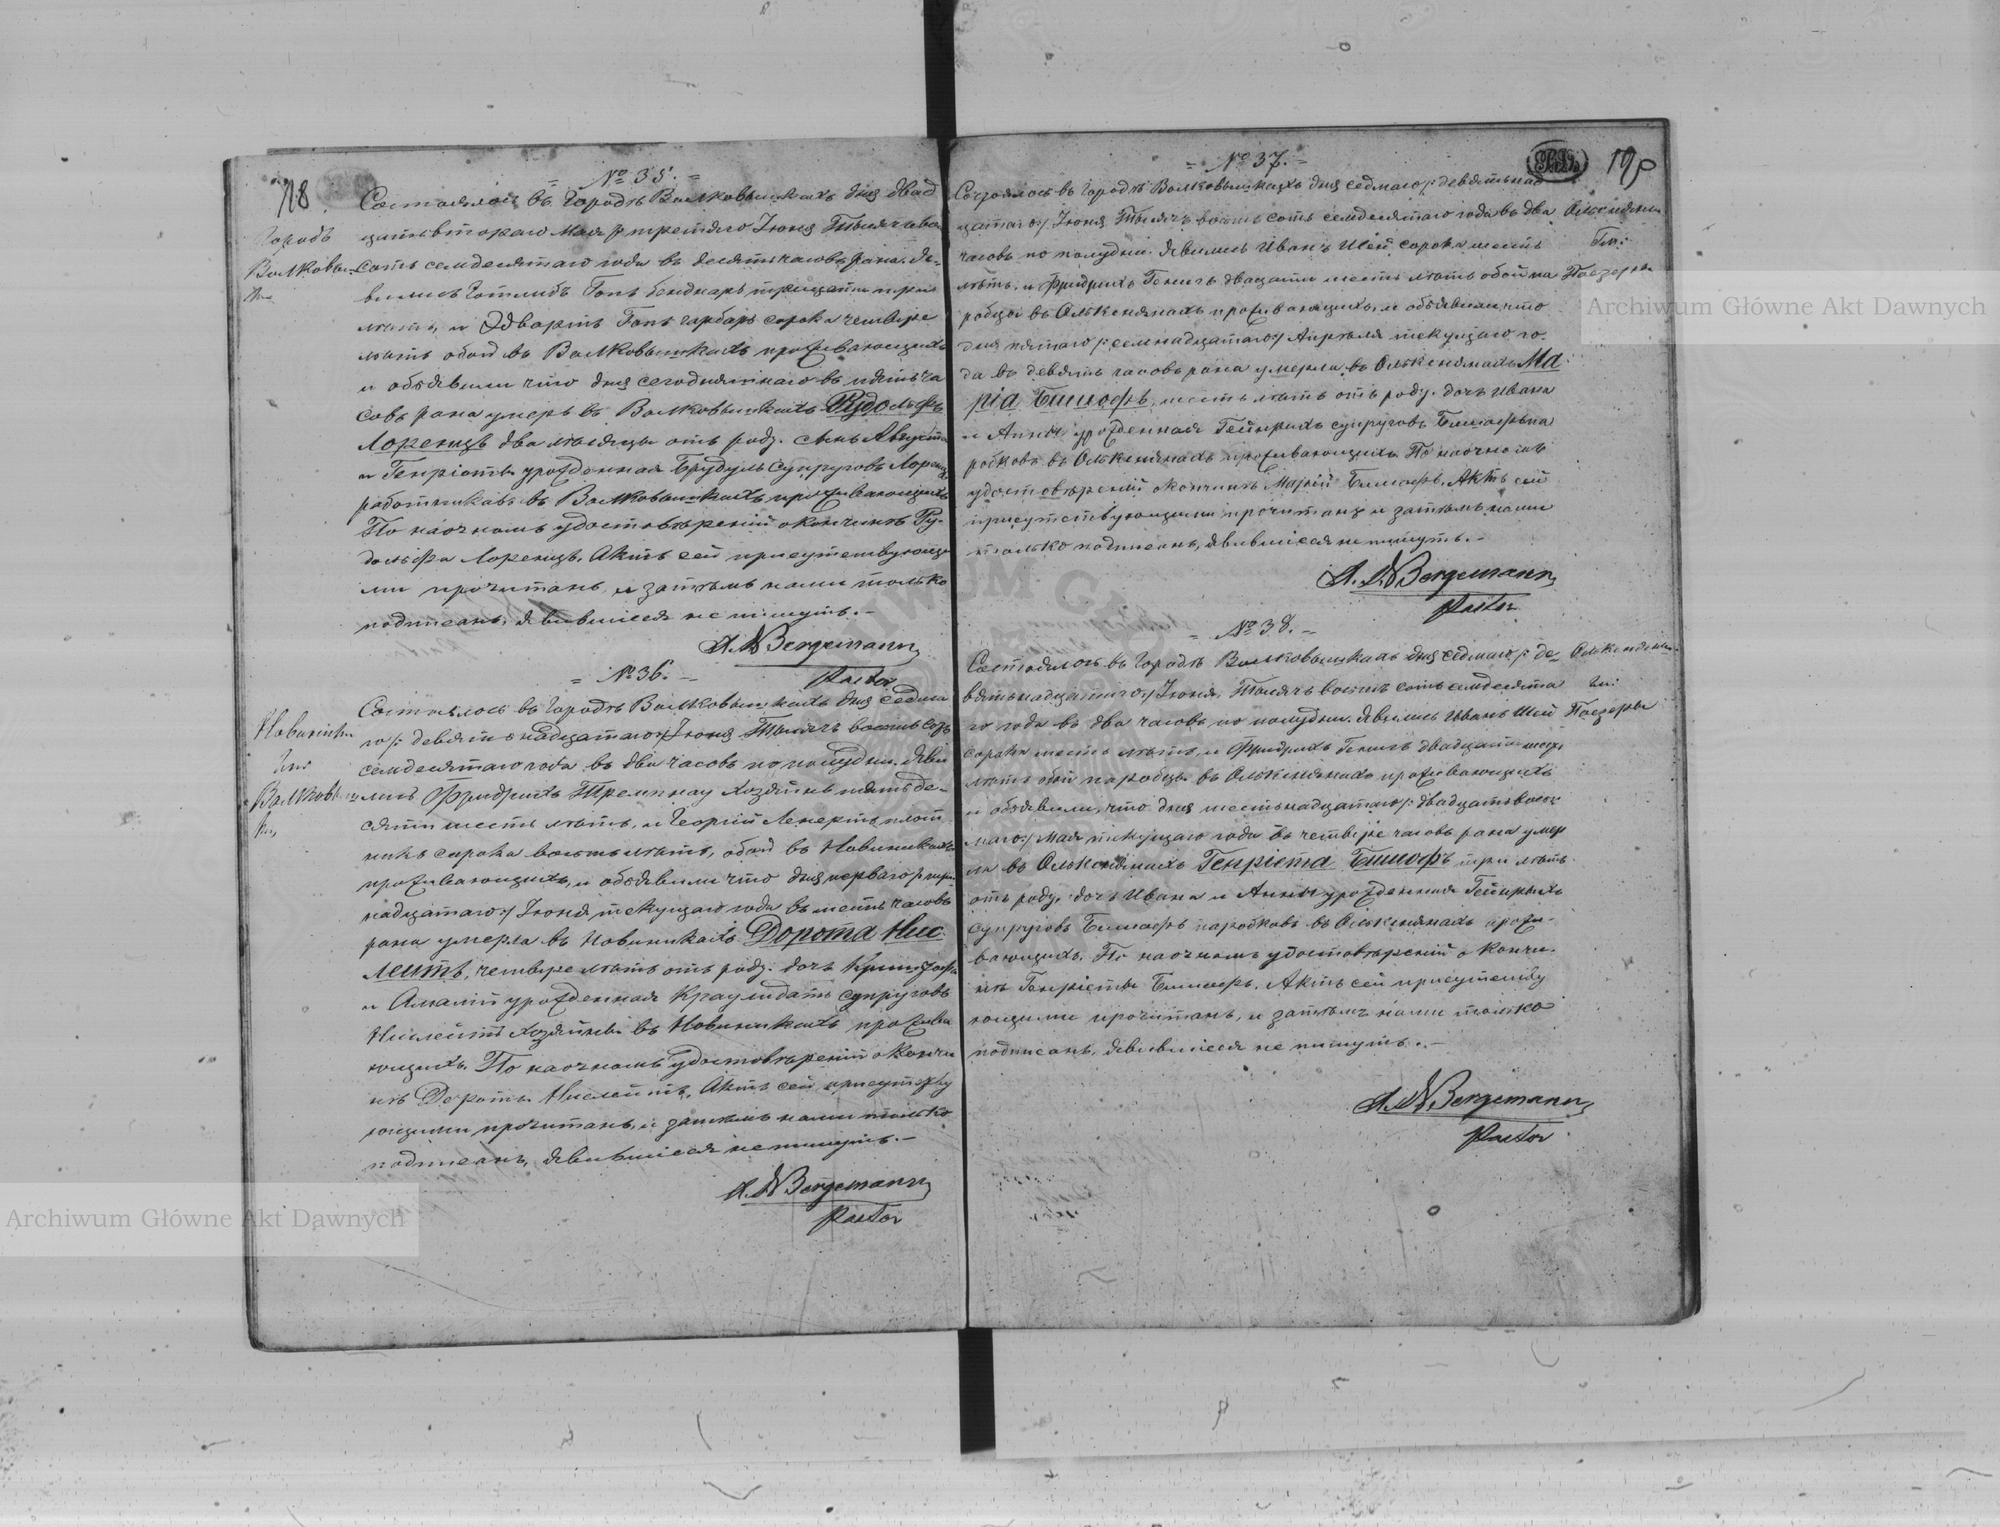 718
№ 35.
Городъ
Волковыш-
ки
Состоялось въ городѣ Волковышкахъ дня двад
цать втораго Мая /: третяго Іюня Тысяча во
сотъ семдесятаго года въ десять часовъ рана. Яв-
вились Готлибъ Гопъ бондаръ тридцати три
лѣтъ, и Эдвартъ Гопъ гарбаръ сорока четыре
лѣтъ обои въ Волковышкахъ проживающихъ
и объявили что дня сегоднятнаго въ пять ча
совъ рана умеръ въ Волковышкахъ Рудольфъ
Лоренцъ два мѣсяцы отъ роду. сынъ Августа
и Генріэты урожденная Брудуль супруговъ Лоренцъ
работниковъ въ Волковышкахъ проживающихъ
По наочномъ удостовѣреніи о кончинѣ Ру-
дольфа Лоренцъ, Актъ сей присутствующи
ми прочитанъ, и затѣмъ нами только
подписанъ, явившіеся не пишутъ.-
Bergemann
Pastor
№ 36.
Новиники
Гм:
Волковыш
ки
Состоялось въ городѣ Волковышкахъ дня седма
го /: девятьнадцатаго:/ Іюня Тысячъ восемь сотъ
семдесятаго года въ два часовъ по полудни. Яви
лись Фридрихъ Тремпнау хозяинъ пятьде-
сяти шесть лѣтъ, и Георгій Ленертъ плот
никъ сорока восемь лѣтъ, обои въ Новиникахъ
проживающихъ, и объявили что дня перваго /: три-
надцатаго:/ Іюня текущаго года въ шесть часовъ
рана умерла въ Новиникахъ Дорота Нис
лейтъ, четыре лѣтъ отъ роду. дочь Криштофа
и Амаліи урожденная Краушатъ супруговъ
Нислейтъ хозяйновъ въ Новиникахъ прожива
ющихъ. По наочномъ удостовѣреніи о кончи
нѣ Дероты Нислейтъ, Актъ сей присутству
ющими прочитанъ, и затѣмъ нами только
подписанъ, явившіеся не пишутъ.-
Bergemann
Pastor
№ 37.
Состоялось въ городѣ Волковышкахъ дня седмаго /: девятьнад
цатаго:/ Іюня Тысячъ восемь сотъ семдесятаго года въ два
часовъ по полудни. Явились Иванъ Шей сорока шесть
лѣтъ, и Фридрихъ Генигъ двацати шесть лѣтъ обои па
робцы въ Олькснянахъ проживающихъ, и объявили, что
дня пятаго /: семнадцатаго:/ Апрѣля текущаго го-
да въ девять часовъ рана умерла въ Олькснянахъ Ма
рія Бишофъ, шесть лѣтъ отъ роду. дочь Ивана
и Анны урожденная Гейнрихъ супруговъ Бишофъ па
робковъ въ Олькснянахъ проживающихъ. По наочномъ
удостовѣреніи о кончинѣ Маріи Бишофъ, Актъ сей
присутствующими прочитанъ и затѣмъ нами
только подписанъ, явившіеся не пишутъ.-
Гм:
Поезеры
Bergemann
Pastor
№ 38.
Состоялось въ городѣ Волковышкахъ дня седмаго /: де-
вятьнадцатаго:/ Іюня, Тысячъ восемь сотъ семдесята
го года въ два часовъ по полудни. Явились Иванъ Шей
сорока шесть лѣтъ, и Фридрихъ Генигъ двадцати шесть
лѣтъ обои паробцы въ Олькснянахъ проживающихъ
и объявили, что дня шестьнадцатаго /: двадцать вось
маго:/ Мая текущаго года въ четыре часовъ рана умер
ла въ Олькснянахъ Генріета Бишофъ три лѣтъ
отъ роду, дочь Ивана и Анны урожденная Гейнрыхъ
супруговъ Бишофъ паробковъ въ Олькснянахъ прожи-
вающихъ. По наочномъ удостовѣреніи о кончи-
нѣ Генріеты Бишофъ, Актъ сей присутству
ющими прочитанъ, и затѣмъ нами только
подписанъ, явившіеся не пишутъ.-
Гм:
Поезеры
Bergemann
Pastor
Archiwum Główne Akt Dawnych
Archiwum Główne Akt Dawnych